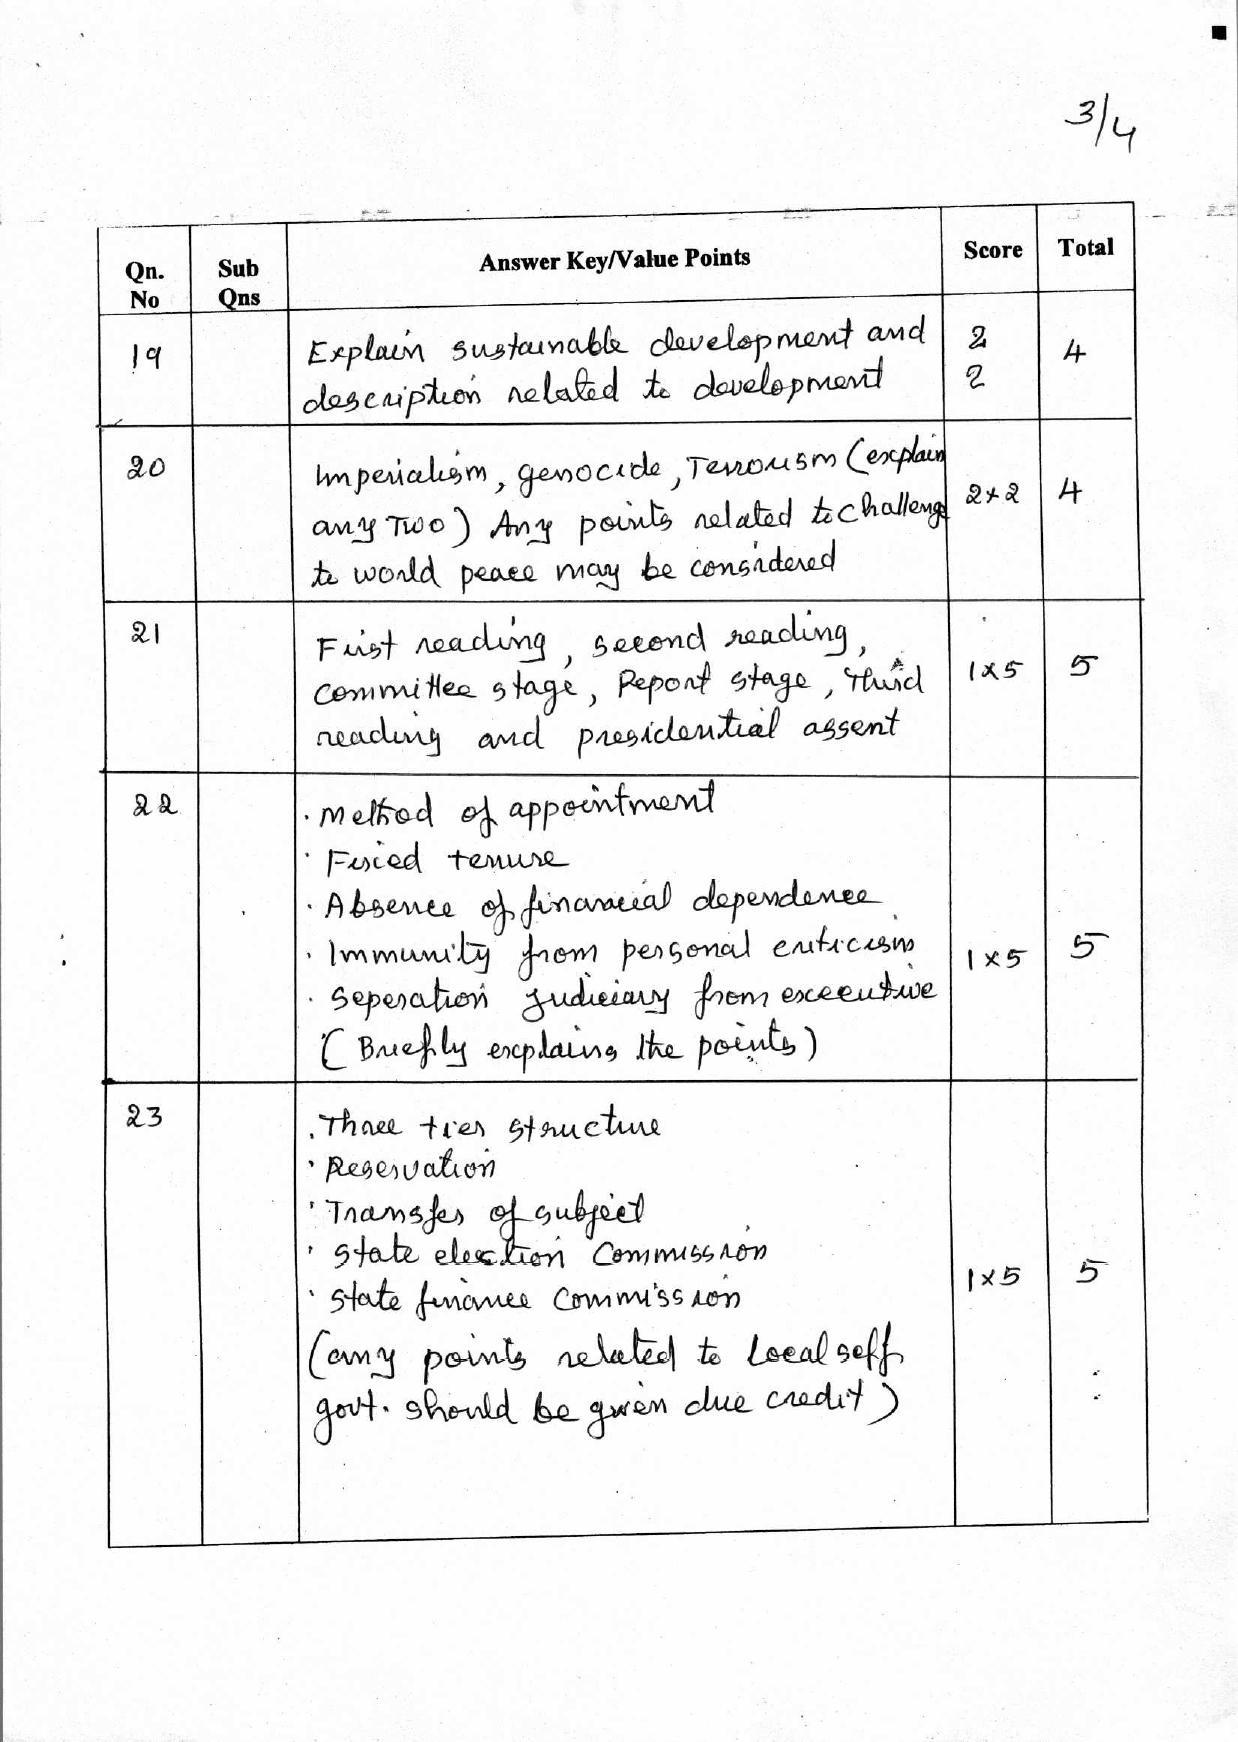 3/4
Qn. No Sub Qns Answer Key/Value Points Score Total
19 Explain sustainable development and 2 4
description related to development 2
20 Imperialism, genocide, Terrorism (explain
any Two) Any points related to challenge 2x2 4
to world peace may be considered
21 First reading, second reading,
committee stage, Report stage, Third 1x5 5
reading and presidential assent
22 . Method of appointment
. Fixed tenure
. Absence of financial dependence
. Immunity from personal criticism 1x5 5
. Seperation judiciary from executive
(Briefly explaing the points)
23 . Three tier structure
. Reservation
. Transfer of subject
. State election Commission
. State finance Commission 1x5 5
(any points related to Local self
govt. should be given due credit)